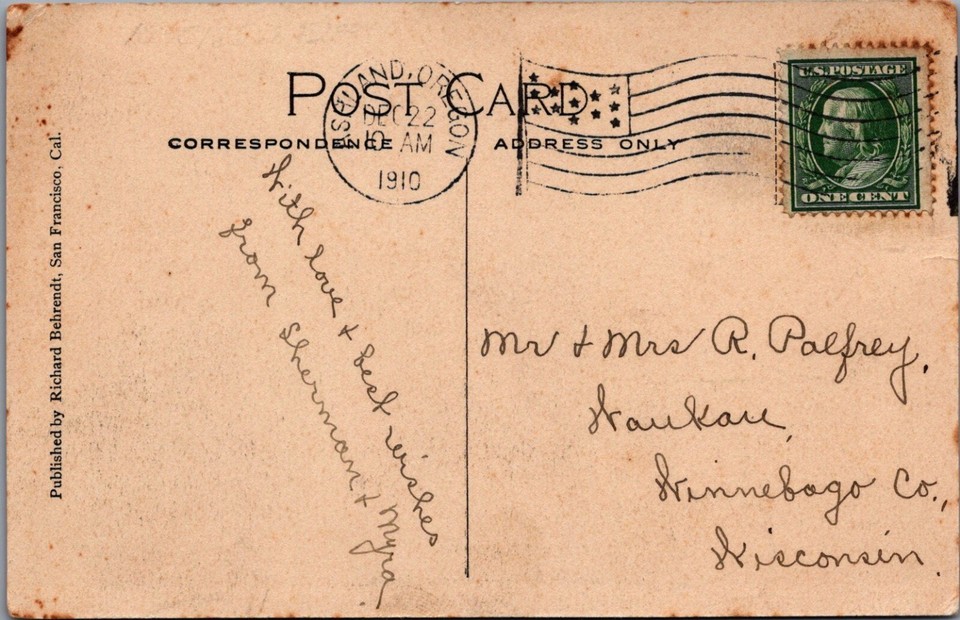 POST CARD
CORRESPONDENCE
ADDRESS ONLY
ASHLAND, OREGON
DEC 22
10 AM
1910
U.S. POSTAGE
ONE CENT
Published by Richard Behrendt, San Francisco, Cal.
With love + best wishes
from Sherman + Myra
Mr + Mrs R. Palfrey,
Waukau,
Winnebago Co.,
Wisconsin.